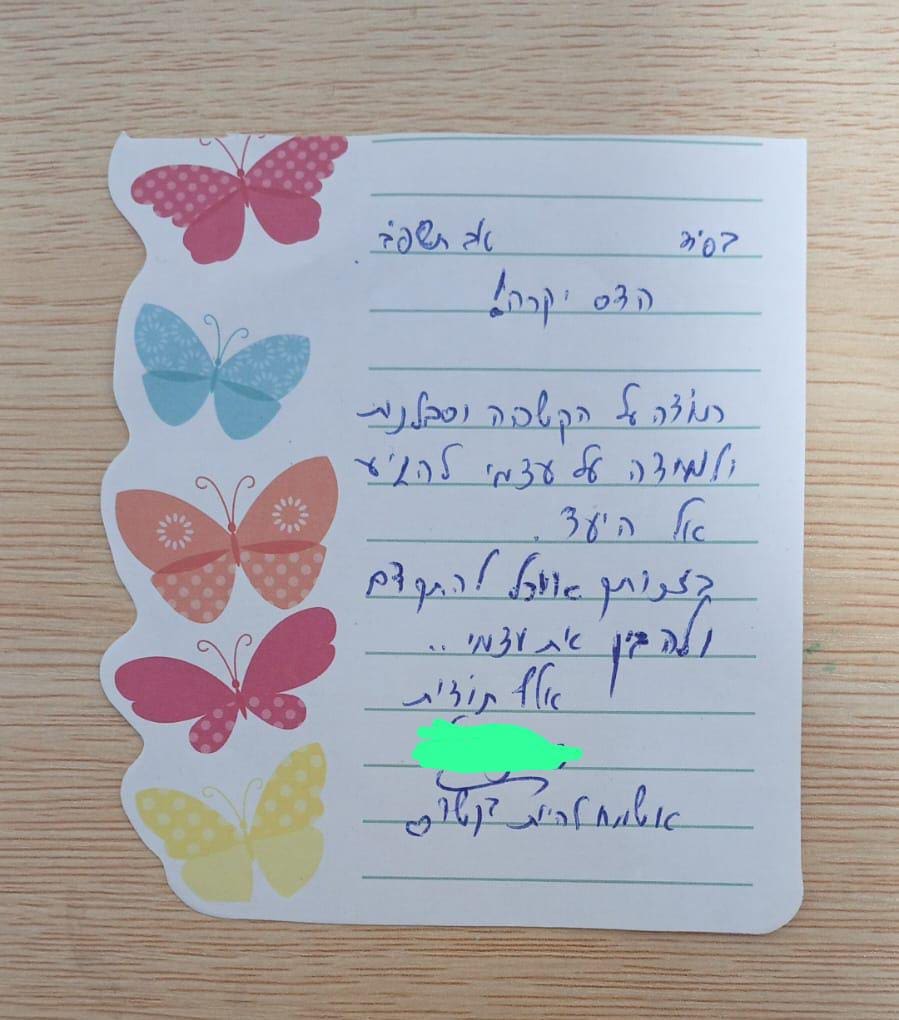 בס״ד אב תשפ״ב
הדס יקרה!
תודה על הקשבה וסבלנות
ולמידה על עצמי להגיע
אל היעד.
בזכותך אוכל להתקדם
ולהבין את עצמי..
אלף תודות
אשמח להיות בקשר